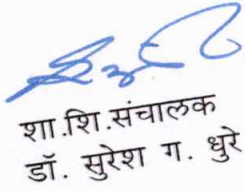 शा.शि.संचालक
डॉ. सुरेश ग. धुरे